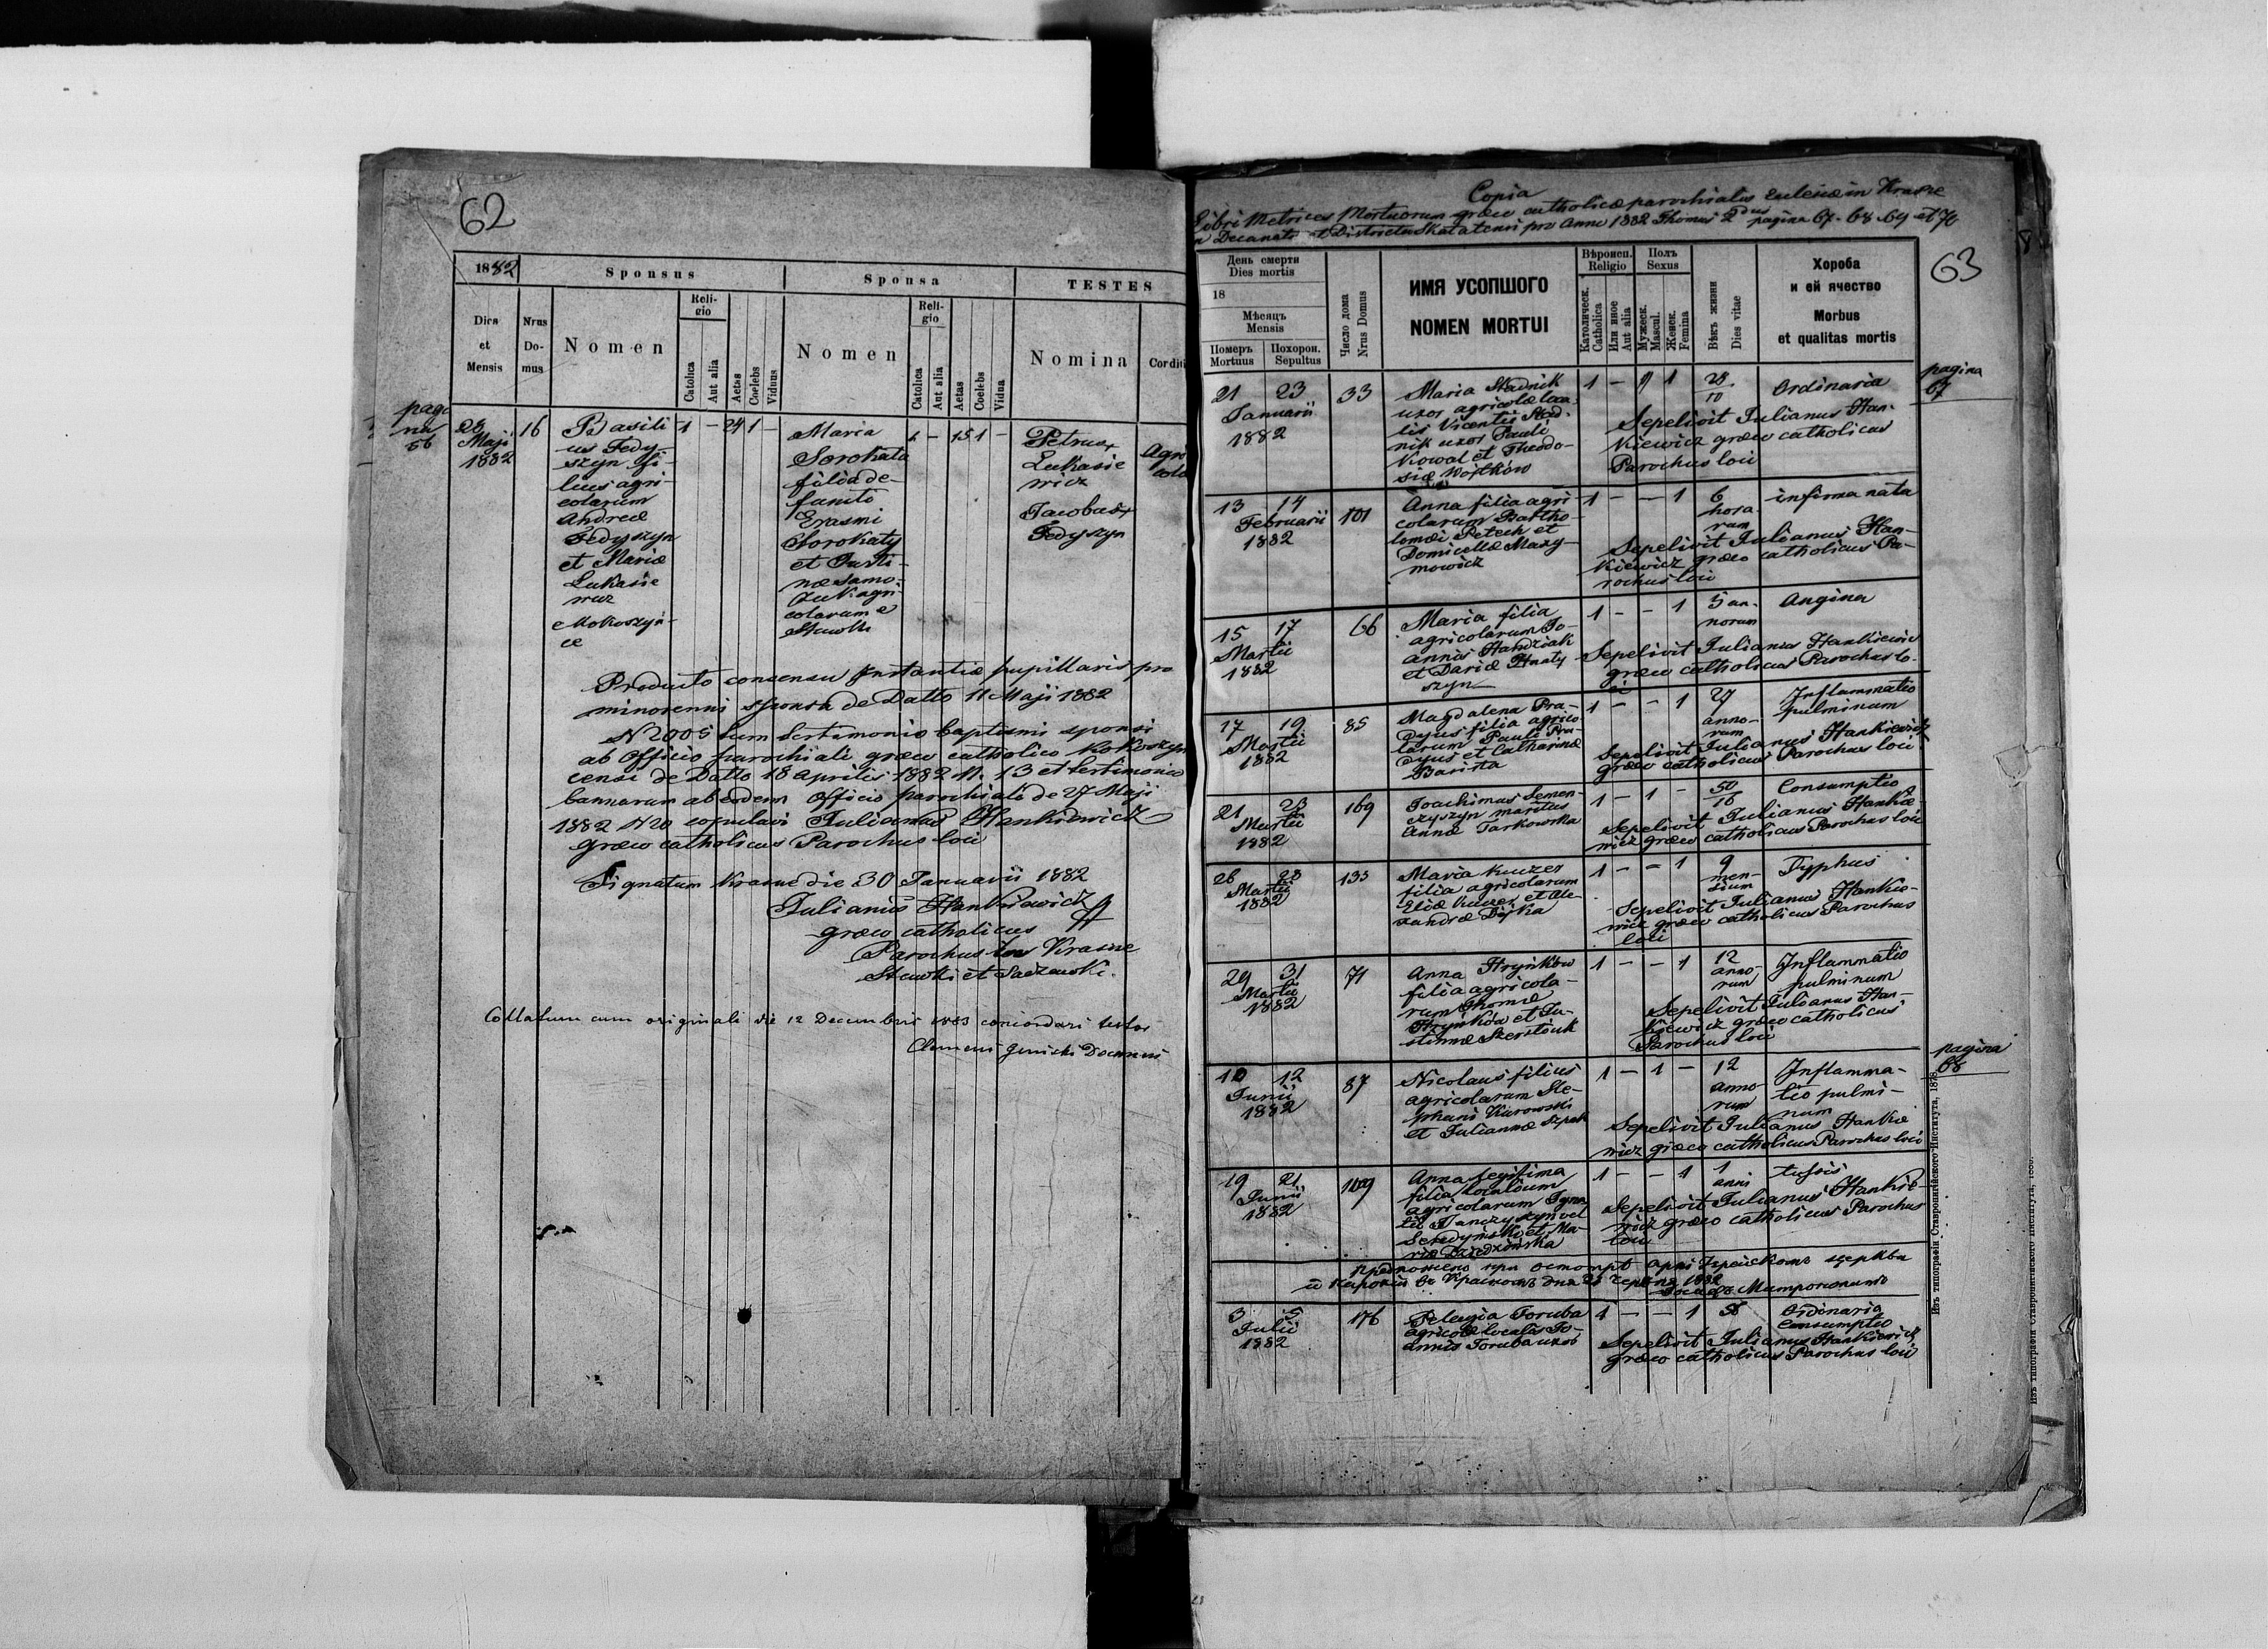 62
1882
Sponsus
Sponsa
TESTES
Dies
et
Mensis
Nrus
Do-
mus
Nomen
Reli-
gio
Catolica
Aut alia
Aetas
Coelebs
Viduus
Nomen
Reli-
gio
Catolica
Aut alia
Aetas
Coelebs
Vidua
Nomina
pagi
na
56
28
Maji
1882
16
Basili
us Fedy-
szyn fi-
lius agri-
colarum
Andreæ
Fedyszyn
et Mariæ
Lukasie
wicz
1 - 24 1 -
Maria
Sorokata
filia de-
functi
Erasmi
Sorokaty
et Justi-
næ Samo-
agri-
colarum e
Stawki
1 - 15 1 -
Petrus +
Lukasie
wicz
Jacobus +
Fedyszyn
Agri
cola
Producto consensu Instantiæ pupillaris pro
minorenni sponsa de Datto 11 Maji 1882
N 2005 tum testimonio baptismi sponsi
ab Officio parochiali græco catholico Kokoszyn
censi de Datto 18 Aprilis 1882 N. 13 et testimonio
bannorum ab eodem Officio parochiali de 27 Maji
1882 N 20 copulavi Julianus Hankiewicz
græco catholicus Parochus loci
Signatum Krasne die 30 Januarii 1882
Julianus Hankiewicz
græco catholicus
Parochus loci Krasne
Stawki et Sadzawki.
Collatum cum originali die 12 Decembris 1883 concordari testor
Clemens
Copia
Libri Metrices Mortuorum græco catholicæ parochialis Ecclesiæ in Krasne
in Decanatu et Districtu Skalatensi pro Anno 1882 Thomus 2dus pagina 67. 68. 69 et 70
63
День смерти
Dies mortis
18
Мѣсяцъ
Mensis
Померъ
Mortuus
Похорон.
Sepultus
Число дома
Nrus Domus
ИМЯ УСОПШОГО
NOMEN MORTUI
Вѣроисп.
Religio
Католическ.
Catholica
Или иное
Aut alia
Полъ
Sexus
Мужеск.
Mascul.
Женск.
Femina
Вѣкъ жизни
Dies vitae
Хороба
и ей ячество
Morbus
et qualitas mortis
pagina
67
21 23
Januarii
1882
33
Maria Stadnik
uxor agricolæ loca-
lis Vicentii Stad-
nik uxor Pauli
Kowal et Theodo-
siæ Wójtków
1 - 1
28
10
Ordinaria
Sepelivit Julianus Han-
kiewicz græco catholicus
Parochus loci
13 14
Februarii
1882
101
Anna filia agri-
colarum Bartho-
lomæi Petech et
Domicellæ Maxy-
mowicz
1 - - 1
6
hora
rum
infirma nata
Sepelivit Julianus Han-
kiewicz græco catholicus Pa-
rochus loci
15 17
Martii
1882
66
Maria filia
agricolarum Jo-
annis Handziak
et Dariæ Hnaty
szyn
1 - - 1
5 an-
norum
Angina
Sepelivit Julianus Hankiewicz
græco catholicus Parochus lo-
ci
17 19
Martii
1882
85
Magdalena Pra-
dyus filia agrico
larum Pauli Pra-
dyus et Catharinæ
Barista
1 - - 1
27
anno-
rum
Inflammatio
pulminum
Sepelivit Julianus Hankiewicz
græco catholicus Parochus loci
21 23
Martii
1882
169
Joachimus Semen-
czyszyn maritus
Annæ Tarkowska
1 - 1 -
50
16
Consumptio
Sepelivit Julianus Hankie-
wicz græco catholicus Parochus loci
26 28
Martii
1882
133
Maria Kuczer
filia agricolarum
Eliæ Kuczer et Ale-
xandræ Bojka
1 - - 1
9
men-
sium
Typhus
Sepelivit Julianus Hankie-
wicz græco catholicus Parochus
loci
29 31
Martii
1882
71
Anna Hryńków
filia agricola-
rum Thomæ
Hryńków et Ju-
stinnæ Szerstiuk
1 - - 1
12
anno-
rum
Inflammatio
pulminum
Sepelivit Julianus Han-
kiewicz græco catholicus
Parochus loci
pagina
68
10 12
Junii
1882
87
Nicolaus filius
agricolarum Ste-
phani Kurowski
et Juliannæ Szpak
1 - 1 -
12
anno-
rum
Inflamma-
tio pulmi-
num
Sepelivit Julianus Hankie
wicz græco catholicus Parochus loci
19 21
Junii
1882
109
Anna legitima
filia localium
agricolarum Igna
tii Janczyszyn vel
Seredyński et Ma-
riæ
1 - - 1
1
anni
tussis
Sepelivit Julianus Hankie-
wicz græco catholicus Parochus
loci
церкви
1882
3 5
Julii
1882
176
Pelagia Toruba
agricolæ localis Jo-
annis Toruba uxor
1 - - 1 58
Ordinaria
Consumptio
Sepelivit Julianus Hankiewicz
græco catholicus Parochus loci
Изъ типографіи Ставропигійского Института, 1878.
Изъ типографіи Ставропигійского Института,